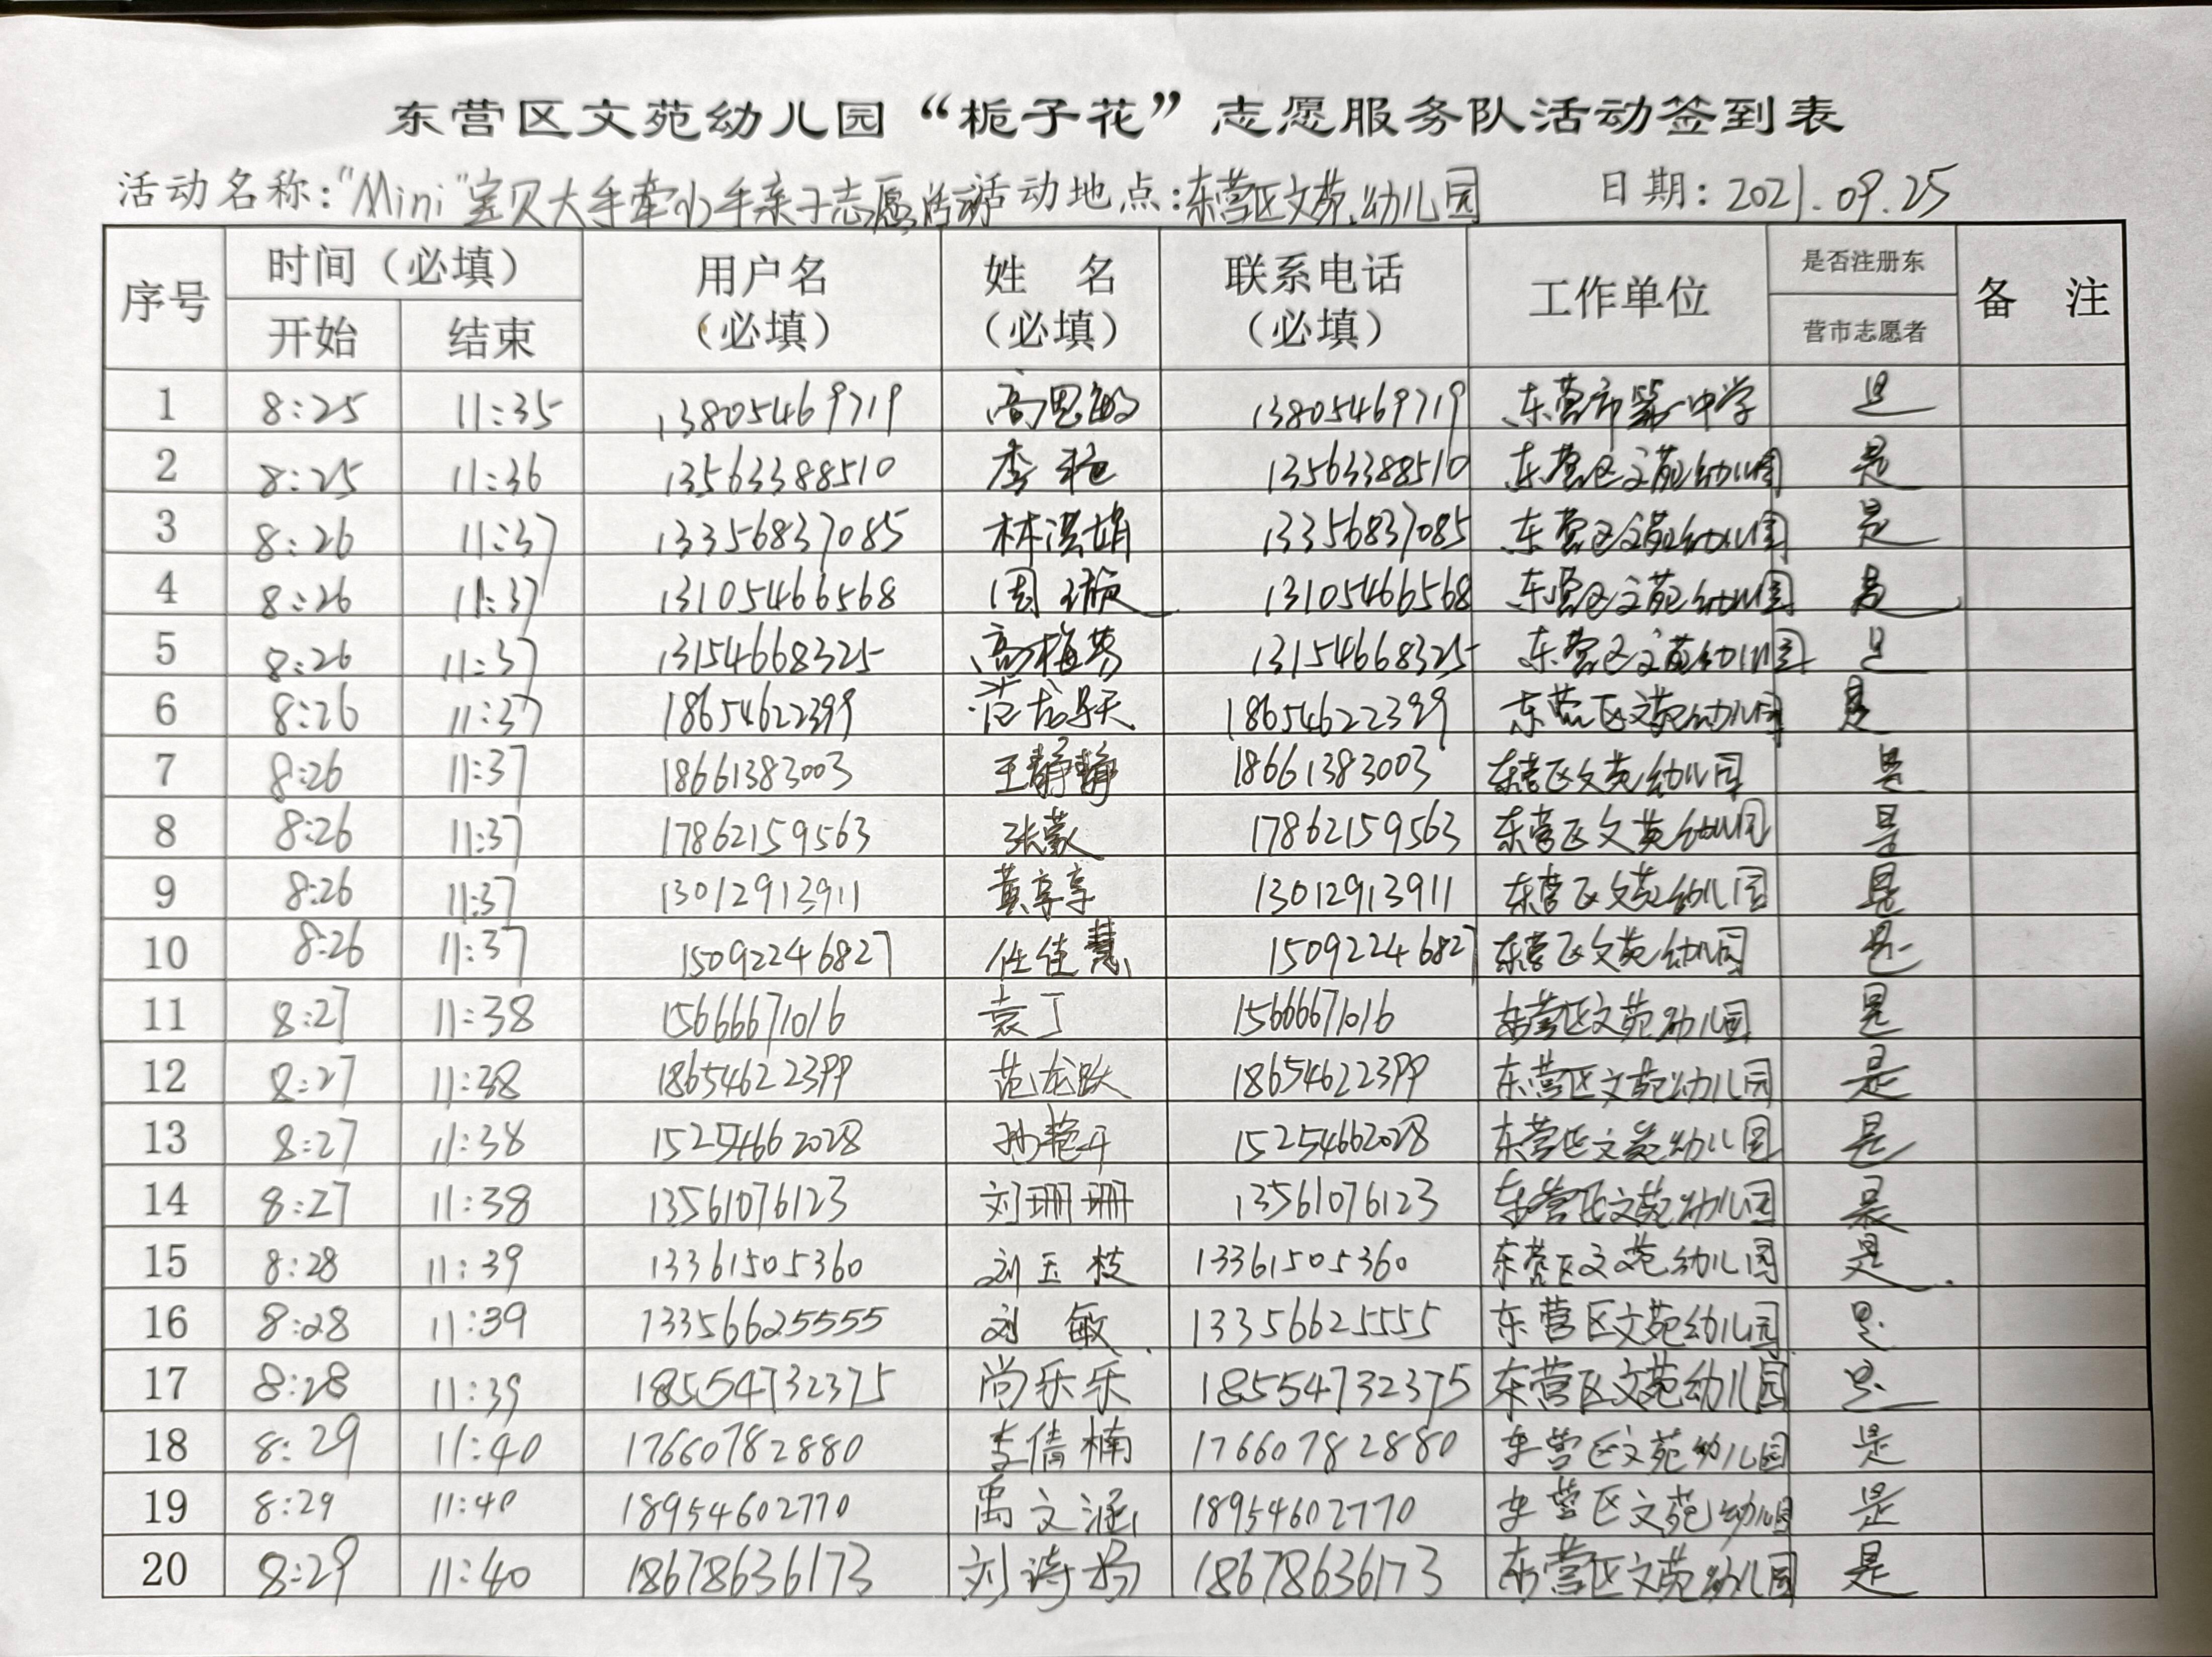 东营区文苑幼儿园“栀子花”志愿服务队活动签到表
活动名称:"Mini"宝贝大手牵小手亲子志愿活动 活动地点:东营区文苑幼儿园 日期:2021.09.25
序号 时间（必填） 用户名（必填） 姓名（必填） 联系电话（必填） 工作单位 是否注册东营市志愿者 备注
开始 结束
1 8:25 11:35 13805469719 高思敏 13805469719 东营市第一中学 是
2 8:25 11:36 13563388510 李艳 13563388510 东营区文苑幼儿园 是
3 8:26 11:37 13356837085 林洪娟 13356837085 东营区文苑幼儿园 是
4 8:26 11:37 13105466568 周璇 13105466568 东营区文苑幼儿园 是
5 8:26 11:37 13154668325 高梅芳 13154668325 东营区文苑幼儿园 是
6 8:26 11:37 18654622399 范龙跃 18654622399 东营区文苑幼儿园 是
7 8:26 11:37 18661383003 王静静 18661383003 东营区文苑幼儿园 是
8 8:26 11:37 17862159563 张蒙 17862159563 东营区文苑幼儿园 是
9 8:26 11:37 13012913911 黄享享 13012913911 东营区文苑幼儿园 是
10 8:26 11:37 15092246827 任佳慧 15092246827 东营区文苑幼儿园 是
11 8:27 11:38 15666671016 袁丁 15666671016 东营区文苑幼儿园 是
12 8:27 11:38 18654622399 范龙跃 18654622399 东营区文苑幼儿园 是
13 8:27 11:38 15254662028 孙艳 15254662028 东营区文苑幼儿园 是
14 8:27 11:38 13561076123 刘珊珊 13561076123 东营区文苑幼儿园 是
15 8:28 11:39 13361505360 刘玉枝 13361505360 东营区文苑幼儿园 是
16 8:28 11:39 13356625555 刘敏 13356625555 东营区文苑幼儿园 是
17 8:28 11:39 18554732375 尚乐乐 18554732375 东营区文苑幼儿园 是
18 8:29 11:40 17660782880 李倩楠 17660782880 东营区文苑幼儿园 是
19 8:29 11:40 18954602770 禹文涵 18954602770 东营区文苑幼儿园 是
20 8:29 11:40 18678636173 刘诗 18678636173 东营区文苑幼儿园 是